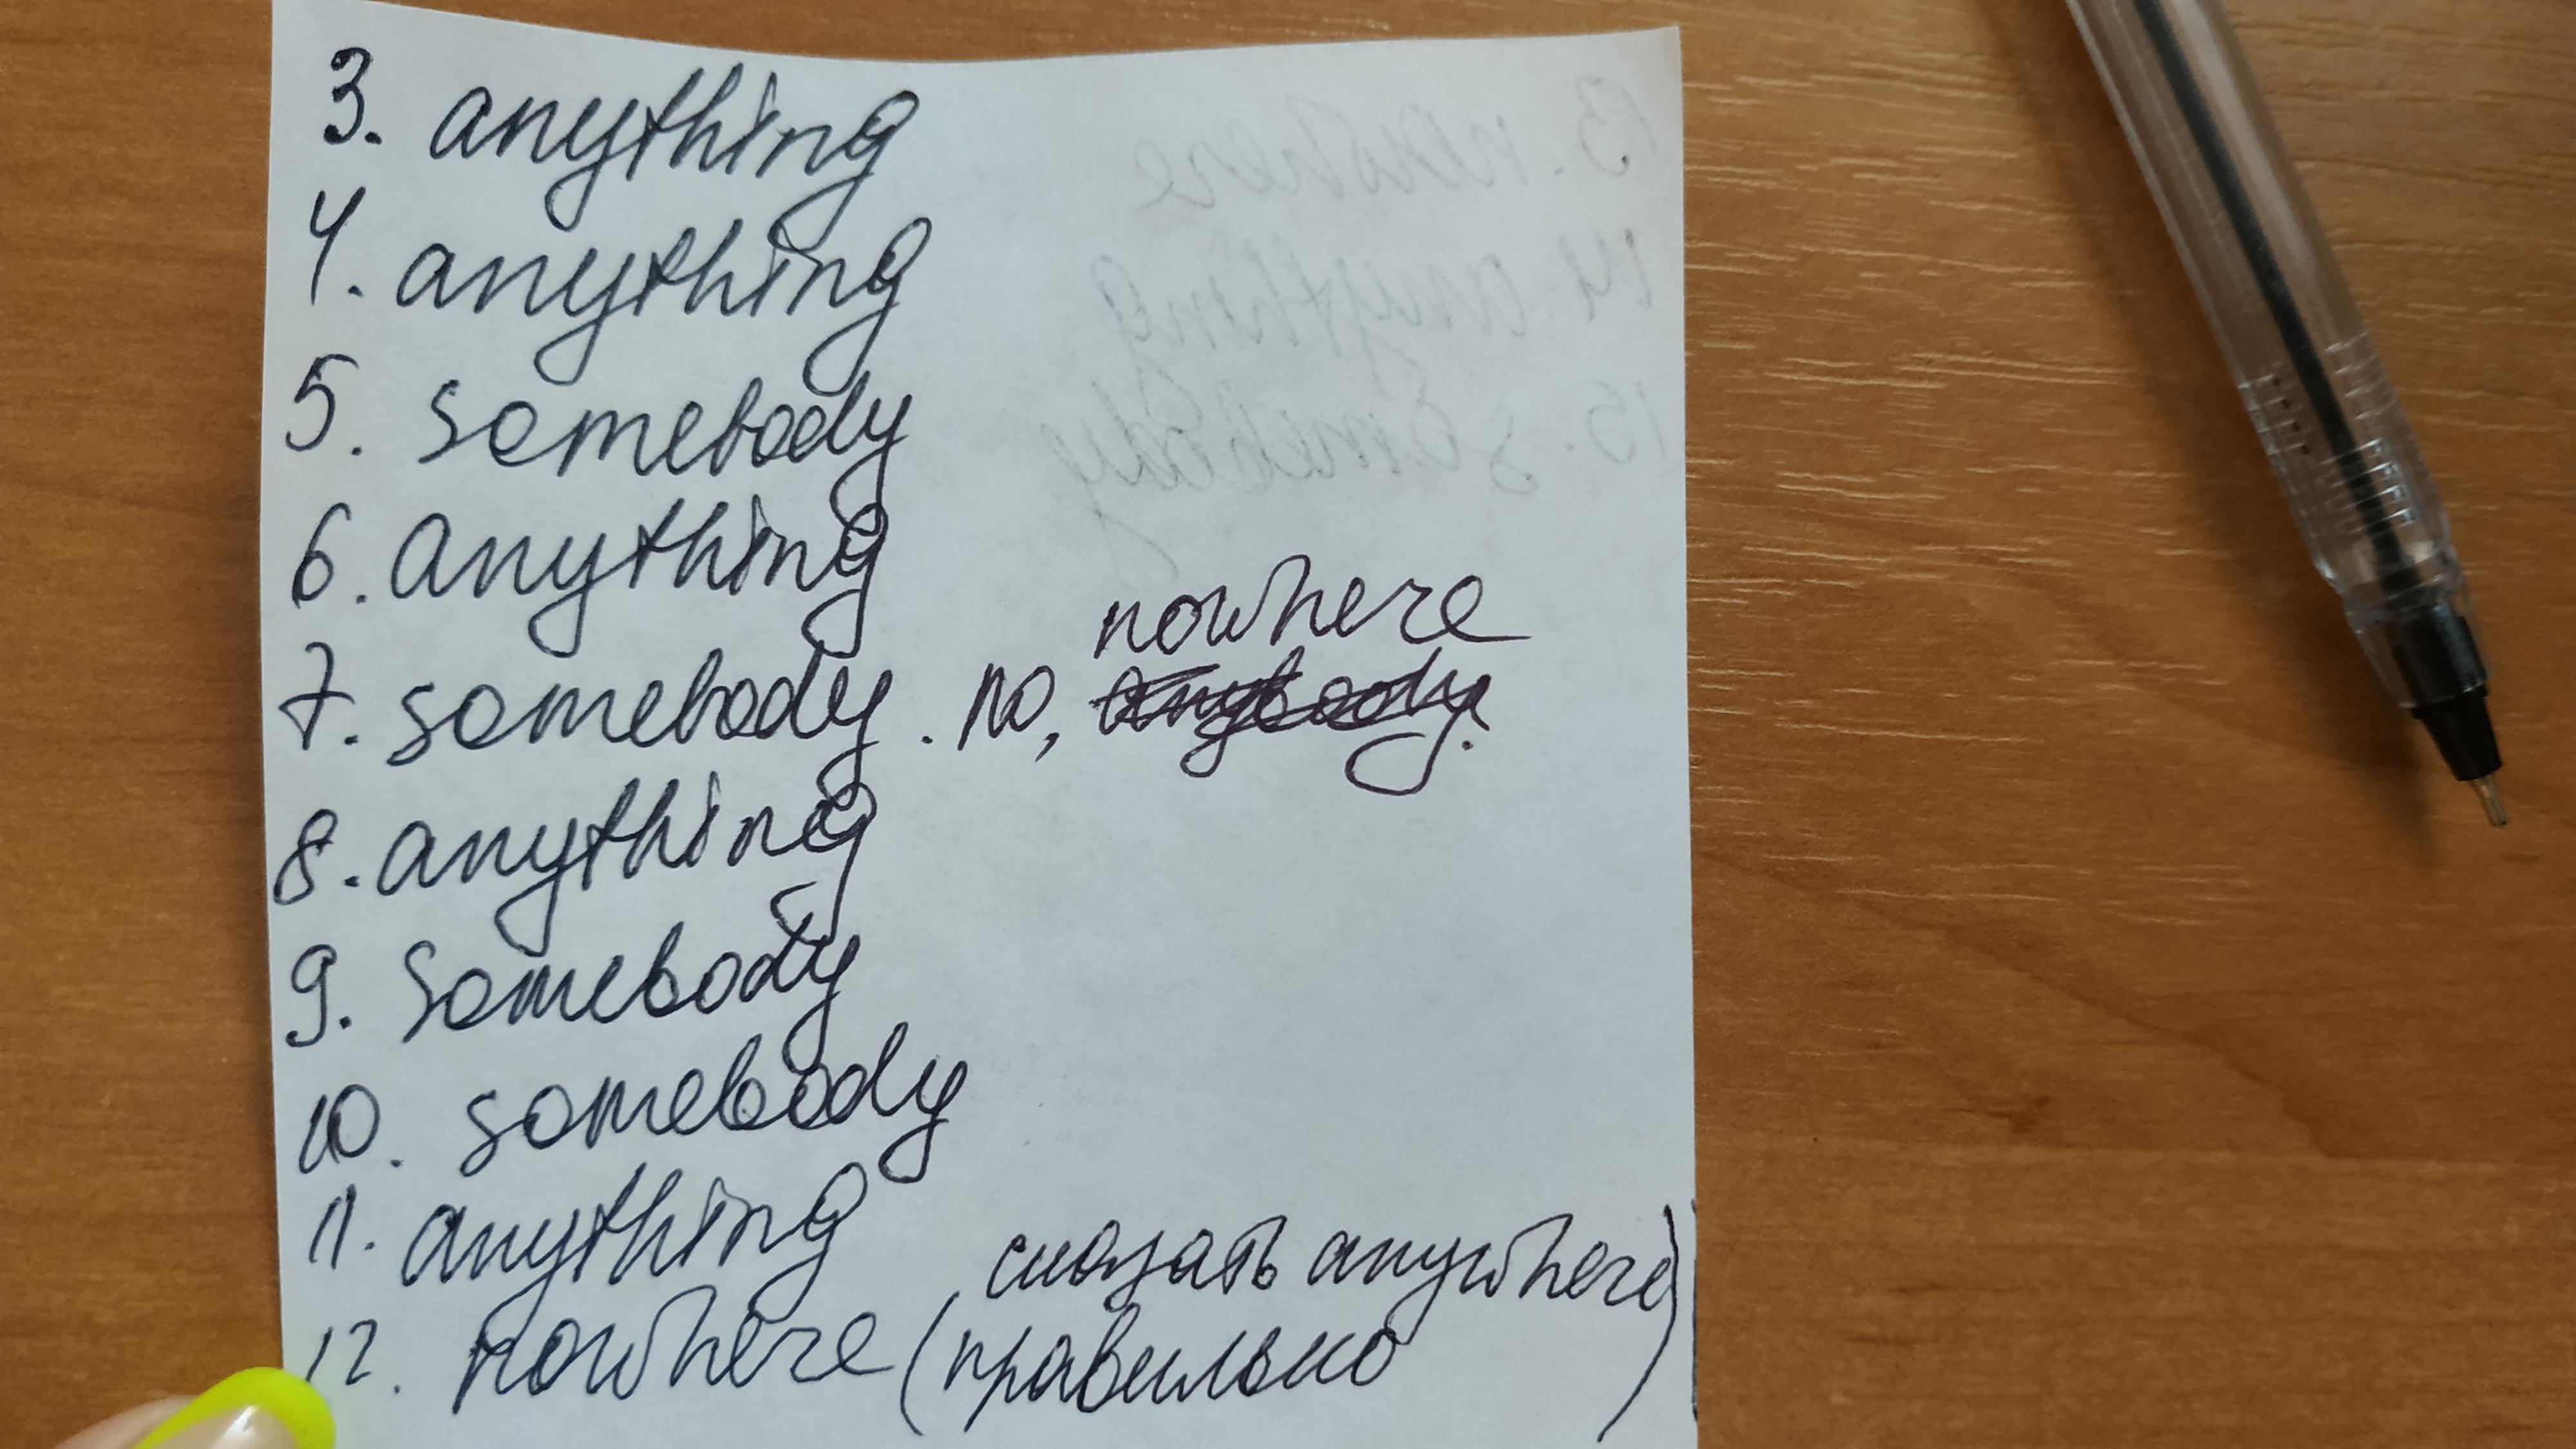 3. anything
4. anything
5. somebody
6. anything
nowhere
7. somebody. no, anybody.
8. anything
9. somebody
10. somebody
11. anything
12. nowhere (правильно
сказать anywhere)
13. nowhere
14. anything
15. somebody